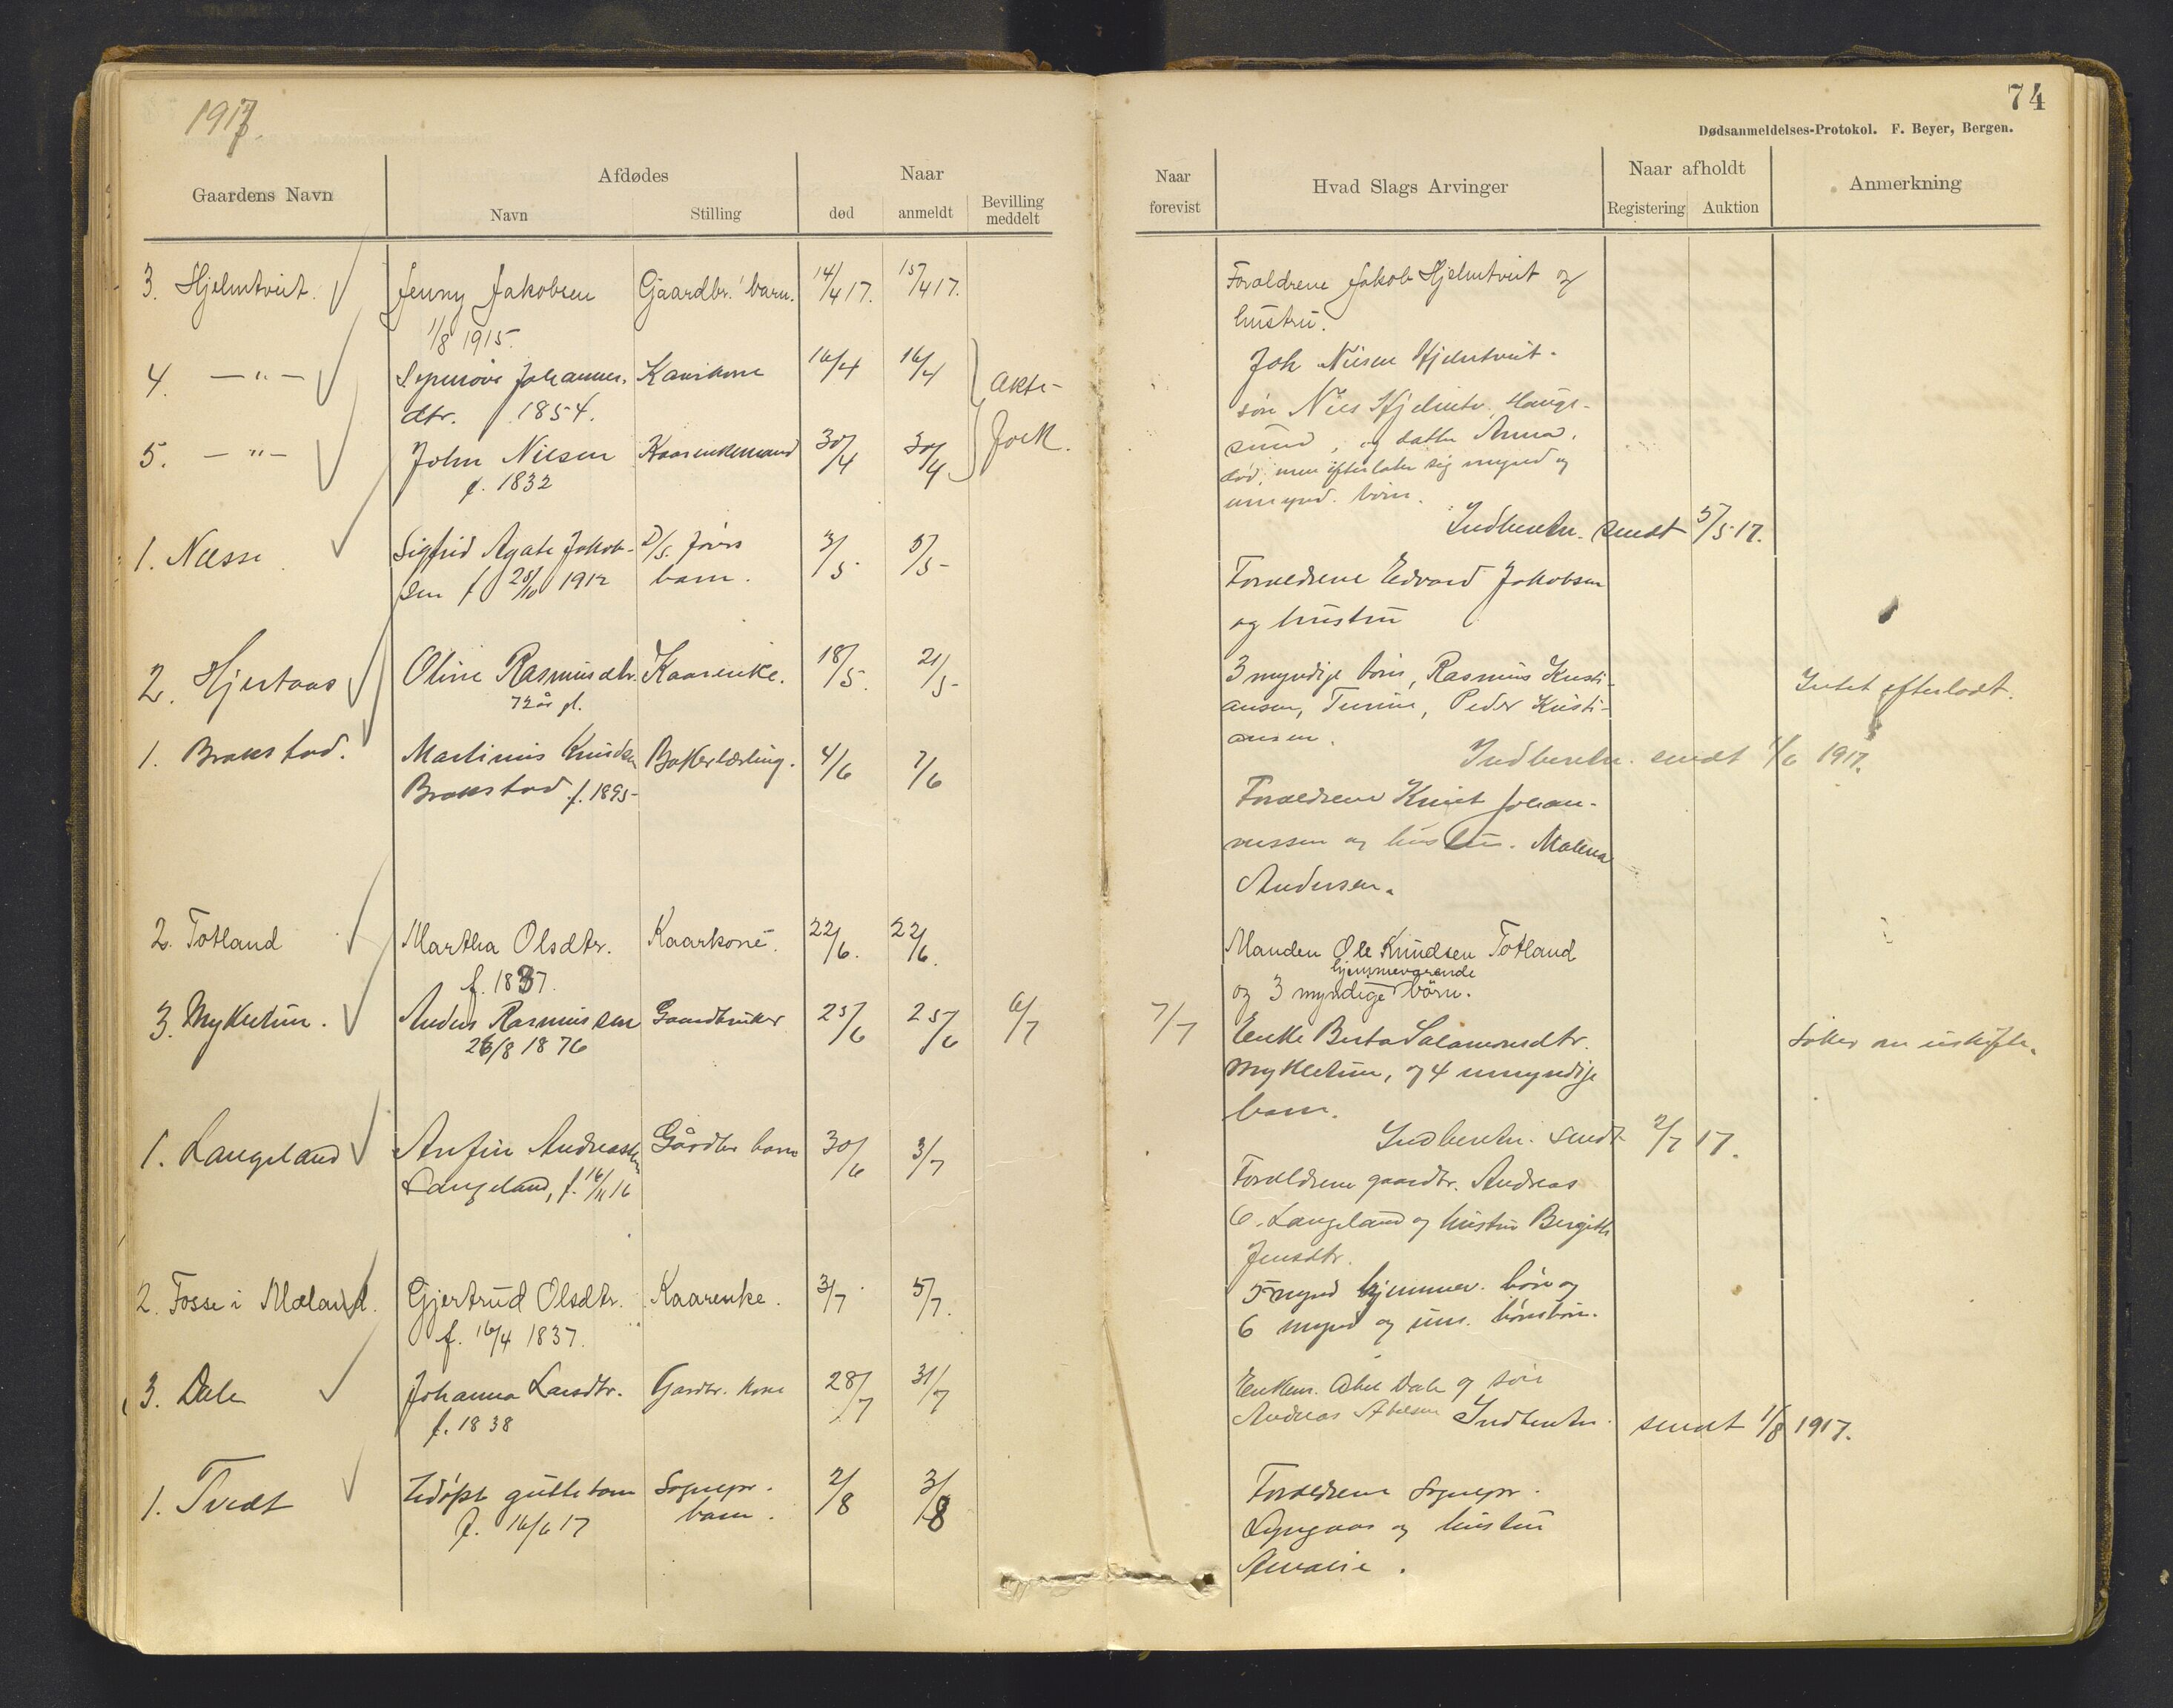 1917.
74
Dødsanmeldelses-Protokol. F. Beyer, Bergen.
Gaardens Navn
Afdødes
Navn
Stilling
Naar
død
anmeldt
Bevilling meddelt
Naar forevist
Hvad Slags Arvinger
Naar afholdt
Registering
Auktion
Anmerkning
3. Hjelmtveit. Jenny Jakobsen Gaardbr. barn. 14/4 17. 15/4 17.
1/8 1915.
Forældrene Jakob Hjelmtveit og
hustru.
4. —"— Johannes- 16/4 16/4
dtr. f. 1854.
5. —"— John Nilsen Kaarenkemand 30/4 30/4
f. 1832
Joh Nilsen Hjelmtveit.
søn Nils Hjelmtv. Hauge-
sund, og datter Anna,
død, men efterlater sig mynd og
umynd. børn.
Indberetn. sendt 5/5 17.
1. Næsse Sigfrid Agate Jakob- barn. 3/5 5/5
sen f 25/10 1912
Forældrene Edvard Jakobsen
og hustru
2. Hjertaas Oline Rasmusdtr. Kaarenke. 18/5. 21/5
72 år gl.
3 myndige børn, Rasmus Kristi-
ansen, Peder Kristi-
ansen.
Intet efterladt.
Indberetn. sendt 1/6 1917.
1. Brakstad. Martinus Knudsen Bakerlærling. 4/6 7/6
Brakstad f. 1895
Forældrene Knut Johan-
nessen og hustru. Malena
Andersen.
2. Totland Martha Olsdtr. Kaarkone. 22/6. 22/6.
f. 1837.
Manden Ole Knudsen Totland
hjemmeværende
og 3 myndige børn.
3. Mykletun. Anders Rasmussen Gaardbruker 25/6 25/6 6/7 7/7
26/8 1876
Enke Berta Salamonsdtr.
Mykletun, og 4 umyndige
barn.
Søker om uskifte.
Indberetn. sendt 2/7 17.
1. Langeland Anfin Andreassen Gårdbr barn 30/6 3/7
Langeland, f. 16/11 16
Forældrene gaardbr. Andreas
O. Langeland og hustru Bergitte
Jensdtr.
2. Fosse i Mæland. Gjertrud Olsdtr. Kaarenke. 3/7 5/7.
f. 16/4 1837.
5 mynd hjemmev. børn og
6 mynd og um. børnebørn.
3. Dale Johanna Larsdtr. Gardbr. kone 28/7 31/7
f. 1838
Enkem. Abel Dale og søn
Andreas Abelsen Indberetn. sendt 1/8 1917.
1. Tvedt Udøpt guttebarn Sognepr. 2/8 3/8
f. 16/6 17 barn.
Forældrene Sognepr.
Lyngaas og hustru
Amalie.